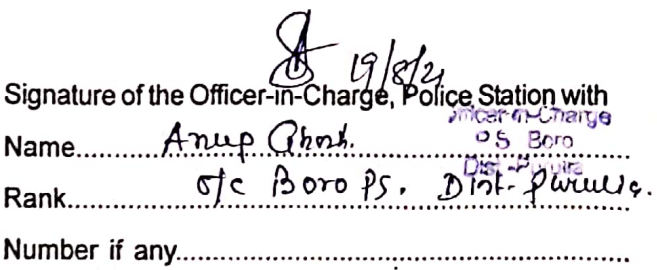 19/8/21
Signature of the Officer-in-Charge, Police Station with
Officer-in-Charge
Name.......... Anup Ghosh.
PS Boro
Dist.-Purulia
Rank.......... O/C Boro PS. Dist- Purulia.
Number if any..........